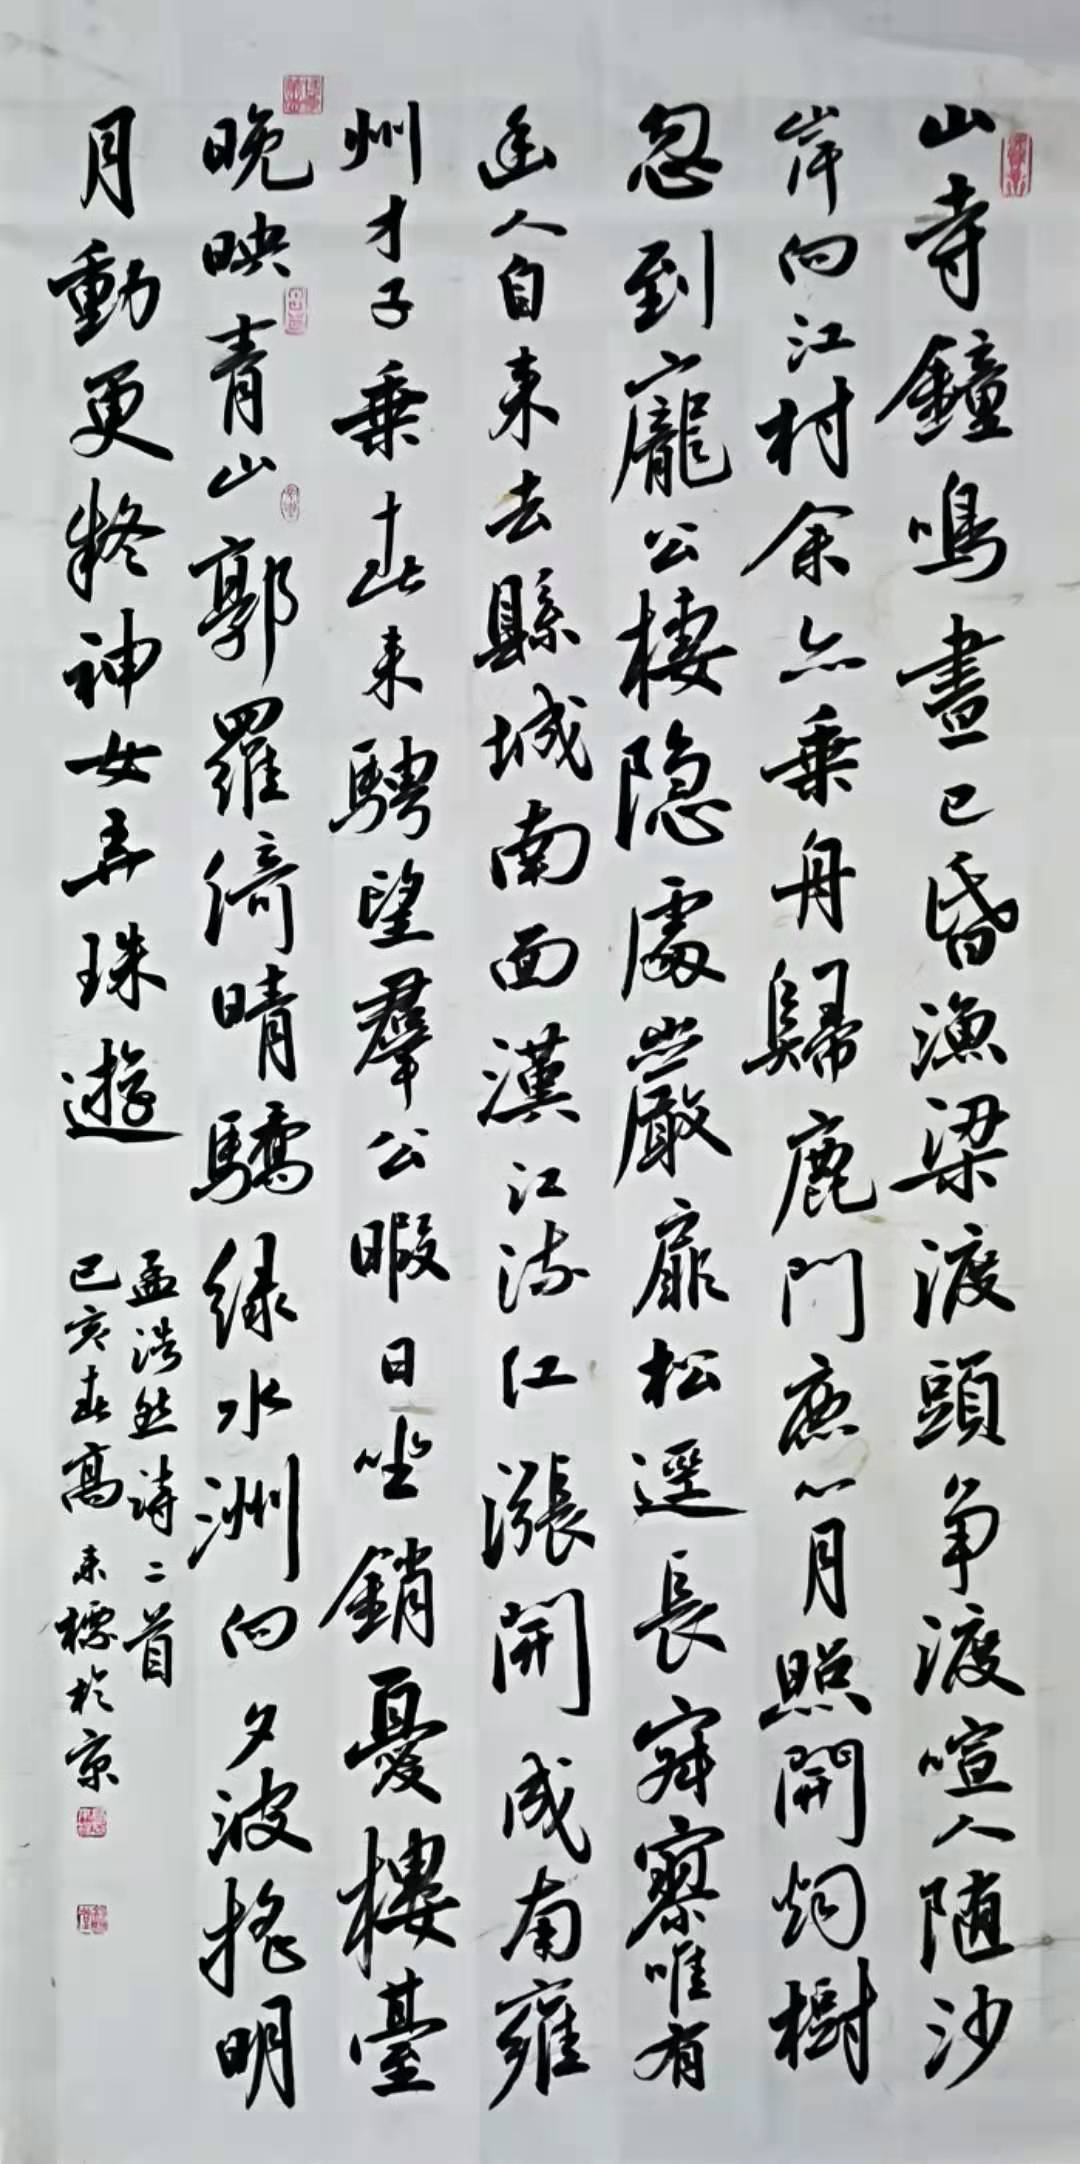 山寺鐘鳴晝已昏漁梁渡頭争渡喧人随沙
岸向江村余亦乘舟歸鹿門鹿門月照開烟樹
忽到龐公棲隐處巖扉松逕長寂寥唯有
幽人自来去縣城南面漢江流江漲開成南雍
州才子乘春来騁望羣公暇日坐銷憂樓臺
晚映青山郭羅綺晴驕緑水洲向夕波摇明
月動更疑神女弄珠遊
孟浩然詩二首
己亥春高来標於京